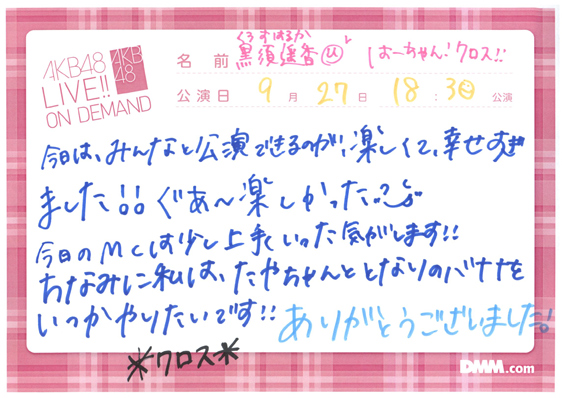 AKB48
LIVE!!
ON DEMAND
AKB
48
くろすはるか
名 前 黒須遥香 はーちゃん!クロス!!
公演日 9月 27日 18:30 公演
今日は、みんなと公演できるのが、楽しくて、幸せすぎ
ました!! ぐあ〜楽しかった
今日のMCは少し上手くいった気がします!!
ちなみに私は、たやちゃんととなりのバナナを
いつかやりたいです!! ありがとうございました!
*クロス*
DMM.com